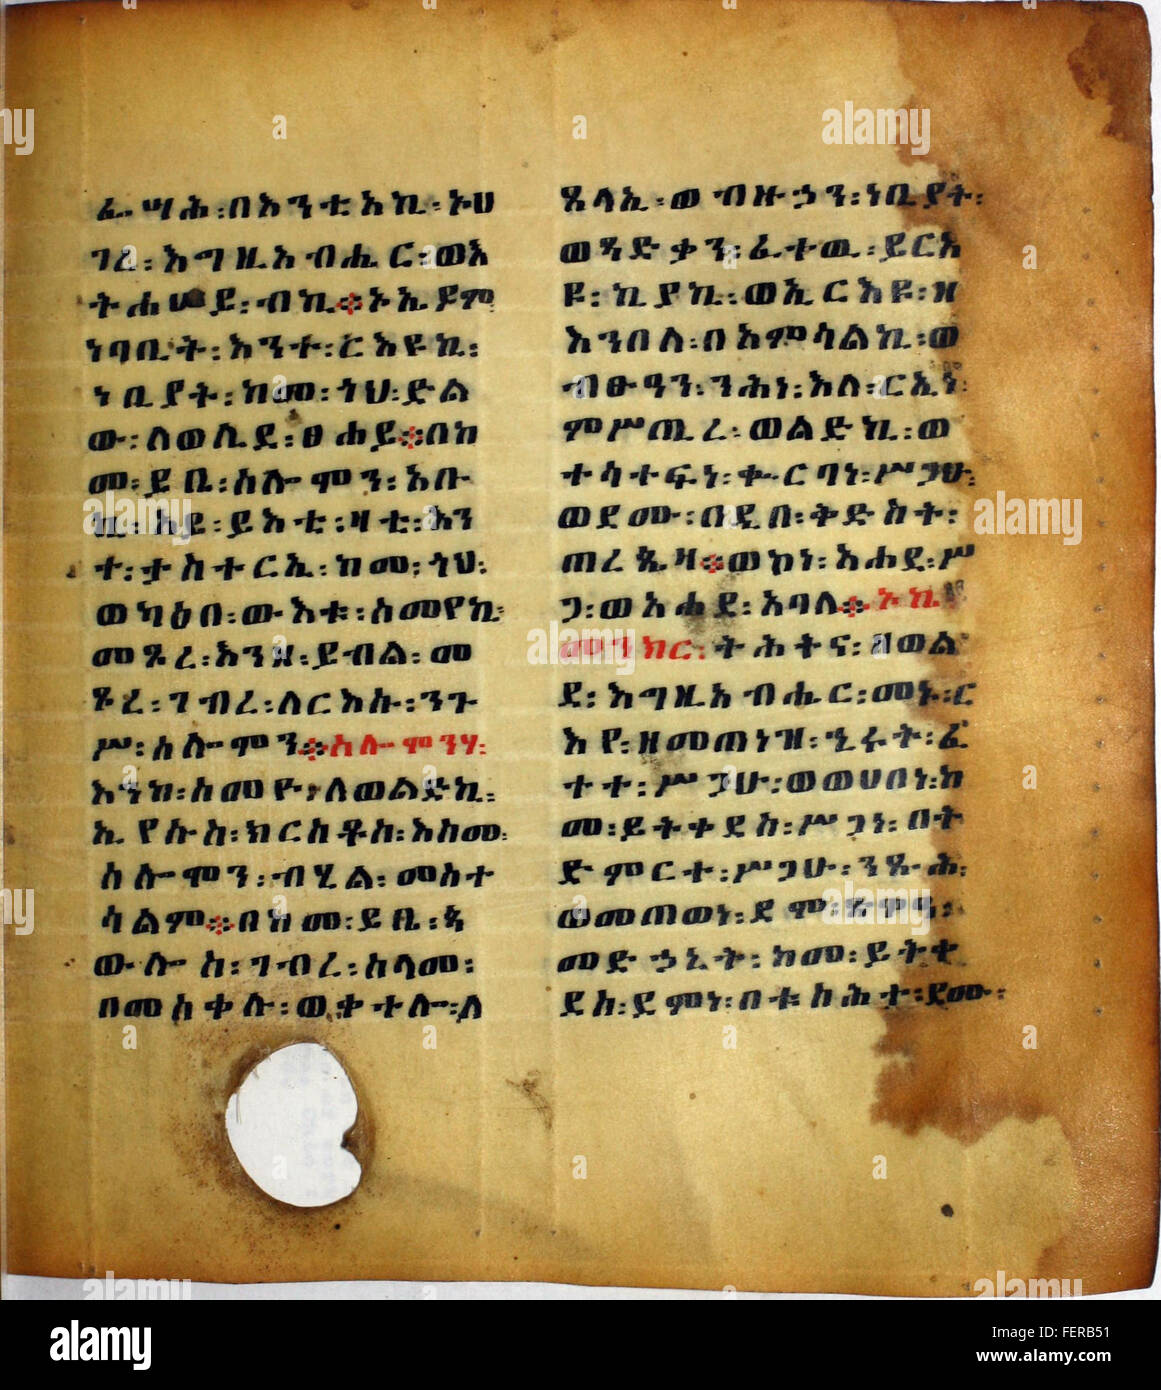 ፈ ሣሕ፡በአንቲአኪ፡ኦሀ
ገረ፡እግዚአብሔር፡ወእ
ትሐሠይ፡ብኪ፨ኦኢያም
ነባቢት፡አንተ፡ርእዩኪ፡
ነቢያት፡ከመ፡ጎህ፡ድል
ው፡ለወሊደ፡ፀሐይ፨በከ
መ፡ይቤ፡ሰሎሞን፡አቡ
ኪ፡አይ፡ይእቲ፡ዛቲ፡እን
ተ፡ታስተርኢ፡ከመ፡ጎህ፡
ወካዕበ፡ውእቱ፡ስመየኪ፡
መጾረ፡እንዘ፡ይብል፡መ
ጾረ፡ገብረ፡ለርእሱ፡ንጉ
ሥ፡ሰሎሞን፨ሰሎሞንሃ፡
እንከ፡ሰመዮ፡ለወልድኪ፡
ኢየሱስ፡ክርስቶስ፡እስመ፡
ሰሎሞን፡ብሂል፡መስተ
ሳልም፨በከመ፡ይቤ፡ጳ
ውሎስ፡ገብረ፡ሰላመ፡
በመስቀሉ፡ወቀተሎ፡ለ
ጼላኢ፡ወብዙኃን፡ነቢያት፡
ወጻድቃን፡ፈተዉ፡ይርአ
ዩ፡ኪያኪ፡ወኢርእዩ፡ዘ
እንበለ፡በአምሳልኪ፡ወ
ብፁዓን፡ንሕነ፡እለ፡ርኢነ፡
ምሥጢረ፡ወልድኪ፡ወ
ተሳተፍነ፡ቍርባነ፡ሥጋሁ፡
ወደሙ፡በዲበ፡ቅድስት፡
ጠረጴዛ፨ወኮነ፡አሐደ፡ሥ
ጋ፡ወአሐደ፡አባለ፨ኦኪ
መንክር፡ትሕትና፡ዘወል
ደ፡እግዚአብሔር፡መኑ፡ር
እየ፡ዘመጠነዝ፡ኂሩት፡ፈ
ተተ፡ሥጋሁ፡ወወሀበነ፡ከ
መ፡ይትቀደስ፡ሥጋነ፡በት
ድምርተ፡ሥጋሁ፡ንጹሕ፡
ወመጠወነ፡ደሞ፡ጽሞዓ፡
መድኃኒት፡ከመ፡ይትቀ
ደስ፡ደምነ፡በቱስሕተ፡ደሙ፡